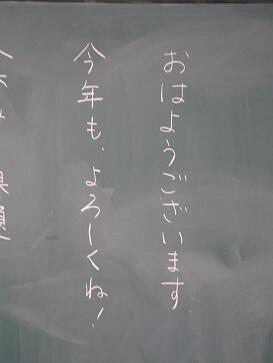 おはようございます
今年も、よろしくね!